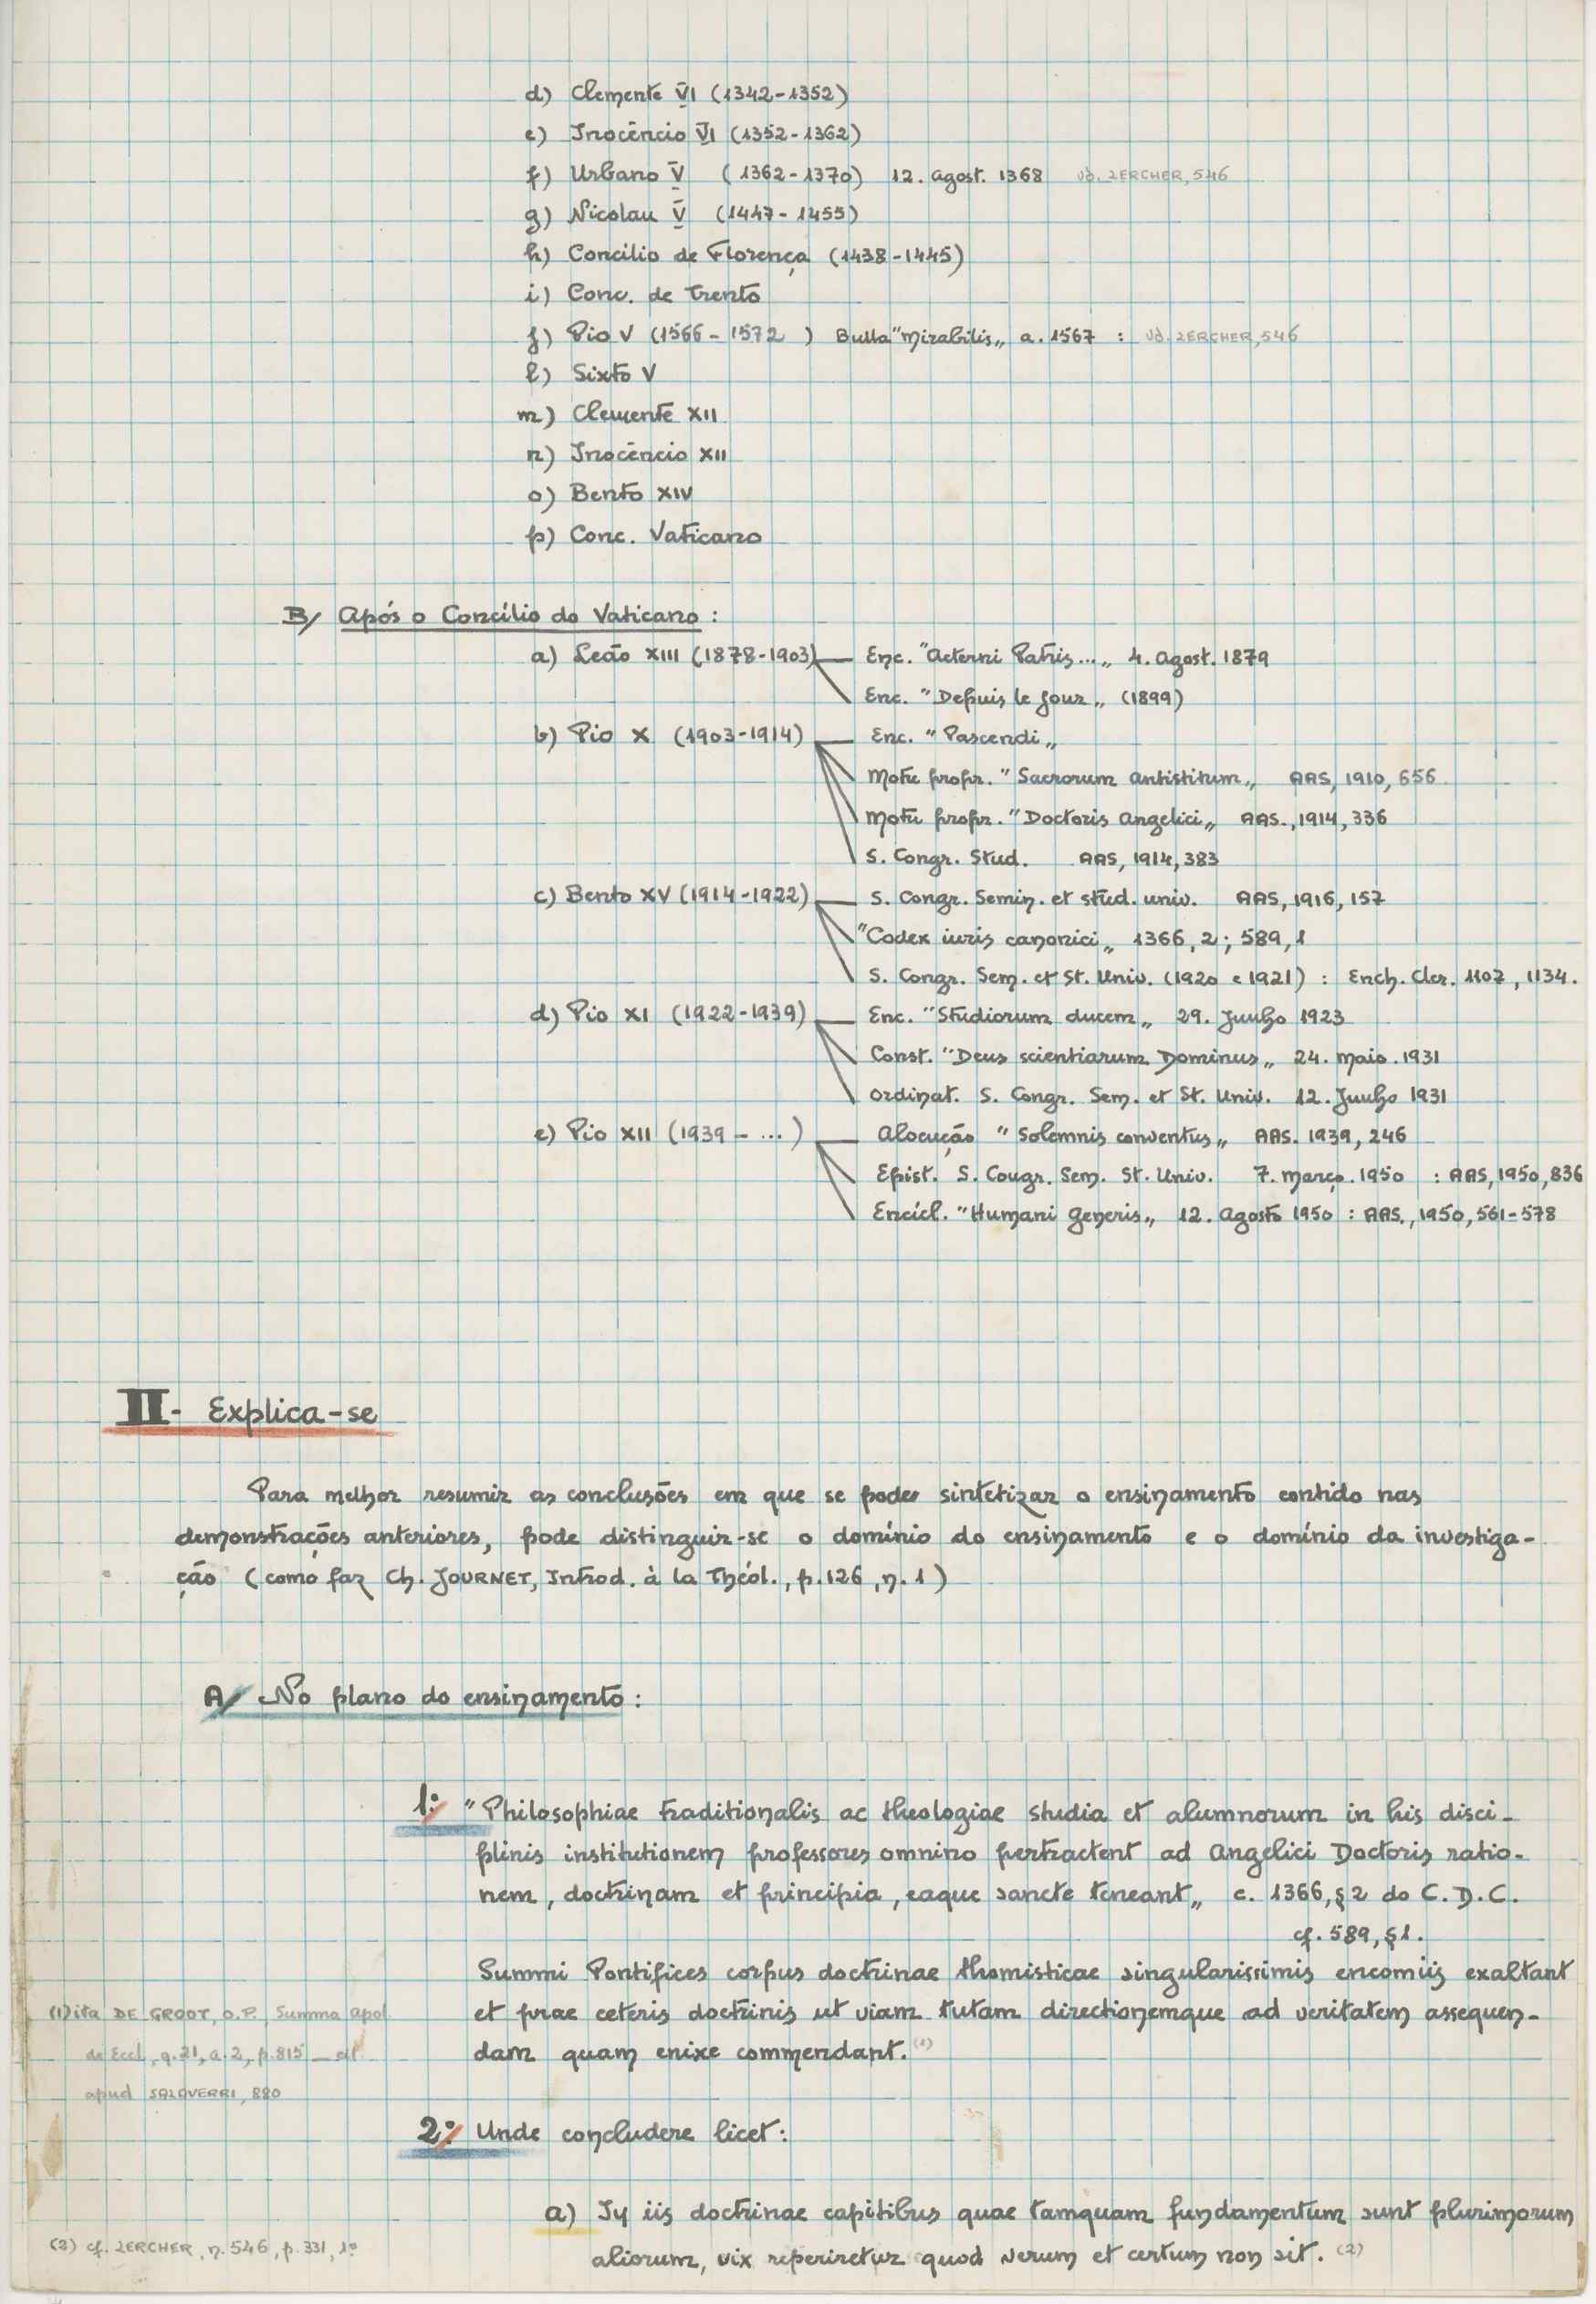 d) Clemente VI (1342-1352)
e) Inocêncio VI (1352-1362)
f) Urbano V (1362-1370) 12. Agost. 1368 vd. LERCHER, 546
g) Nicolau V (1447-1455)
h) Concílio de Florença (1438-1445)
i) Conc. de Trento
j) Pio V (1566-1572) Bulla "Mirabilis„ a. 1567 : vd. LERCHER, 546
l) Sixto V
m) Clemente XII
n) Inocêncio XII
o) Bento XIV
p) Conc. Vaticano
B/ Após o Concílio do Vaticano :
a) Leão XIII (1878-1903) Enc. "Aeterni Patris...„ 4. Agost. 1879
Enc. "Depuis le jour„ (1899)
b) Pio X (1903-1914) Enc. "Pascendi„
Motu propr. "Sacrorum Antistitum„ AAS, 1910, 656
Motu propr. "Doctoris Angelici„ AAS., 1914, 336
S. Congr. Stud. AAS, 1914, 383
c) Bento XV (1914-1922) S. Congr. Semin. et stud. univ. AAS, 1916, 157
"Codex iuris canonici„ 1366, 2; 589, 1
S. Congr. Sem. et St. Univ. (1920 e 1921) : Ench. Cler. 1107, 1134.
d) Pio XI (1922-1939) Enc. "Studiorum ducem„ 29. Junho 1923
Const. "Deus scientiarum Dominus„ 24. Maio. 1931
Ordinat. S. Congr. Sem. et St. Univ. 12. Junho 1931
e) Pio XII (1939 - ...) Alocução "Solemnis conventus„ AAS. 1939, 246
Epist. S. Congr. Sem. St. Univ. 7. Março. 1950 : AAS, 1950, 836
Encícl. "Humani Generis„ 12. Agosto 1950 : AAS., 1950, 561-578
II - Explica-se
Para melhor resumir as conclusões em que se podes sintetizar o ensinamento contido nas
demonstrações anteriores, pode distinguir-se o domínio do ensinamento e o domínio da investiga-
ção (como faz Ch. JOURNET, Introd. à la Théol., p. 126, n. 1)
A/ No plano do ensinamento :
1º "Philosophiae traditionalis ac theologiae studia et alumnorum in his disci-
plinis institutionem professores omnino pertractent ad Angelici Doctoris ratio-
nem, doctrinam et principia, eaque sancte teneant„ c. 1366, § 2 do C. D. C.
cf. 589, § 1.
Summi Pontifices corpus doctrinae thomisticae singularissimis encomiis exaltant
et prae ceteris doctrinis ut viam tutam directionemque ad veritatem assequen-
dam quam enixe commendant. (1)
(1) ita DE GROOT, O.P., Summa apol.
de Eccl., q. 21, a. 2, p. 815 — cit
apud SALAVERRI, 880
2º Unde concludere licet :
a) In iis doctrinae capitibus quae tamquam fundamentum sunt plurimorum
aliorum, vix reperiretur quod verum et certum non sit. (2)
(2) cf. LERCHER, n. 546, p. 331, 1º